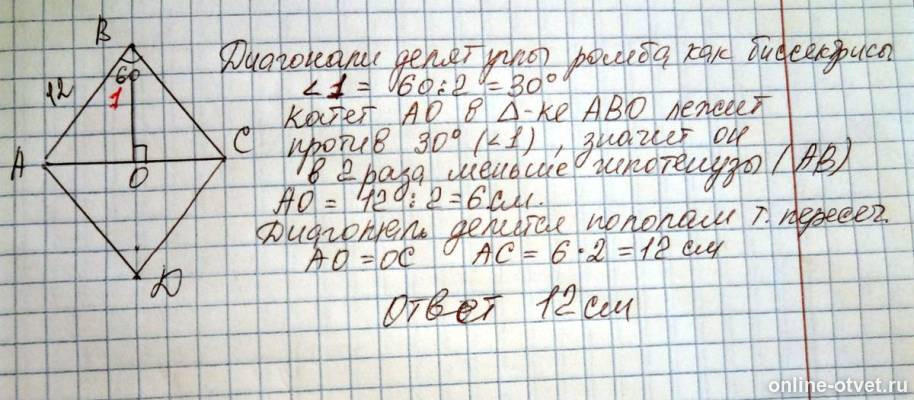 B
12
60
1
A
C
O
D
Диагонали делят углы ромба как биссектрисы
<1 = 60:2 = 30°
Катет АО в Δ-ке АВО лежит
против 30° (<1), значит он
в 2 раза меньше гипотенузы (АВ)
АО = 12:2=6см.
Диагональ делится пополам т. пересеч.
АО=ОС АС = 6·2=12 см
Ответ 12 см
online-otvet.ru